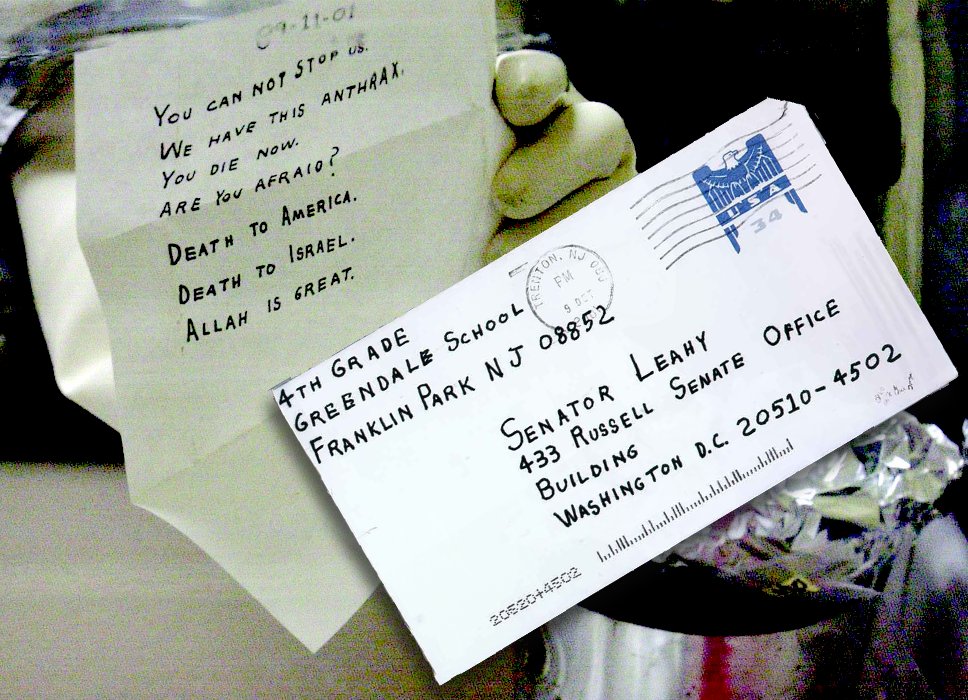 09-11-01
YOU CAN NOT STOP US.
WE HAVE THIS ANTHRAX.
YOU DIE NOW.
ARE YOU AFRAID?
DEATH TO AMERICA.
DEATH TO ISRAEL.
ALLAH IS GREAT.
USA
34
TRENTON, NJ
PM
9 OCT
4TH GRADE
GREENDALE SCHOOL
FRANKLIN PARK NJ 08852
SENATOR LEAHY
433 RUSSELL SENATE OFFICE
BUILDING
WASHINGTON D.C. 20510-4502
20520+4502